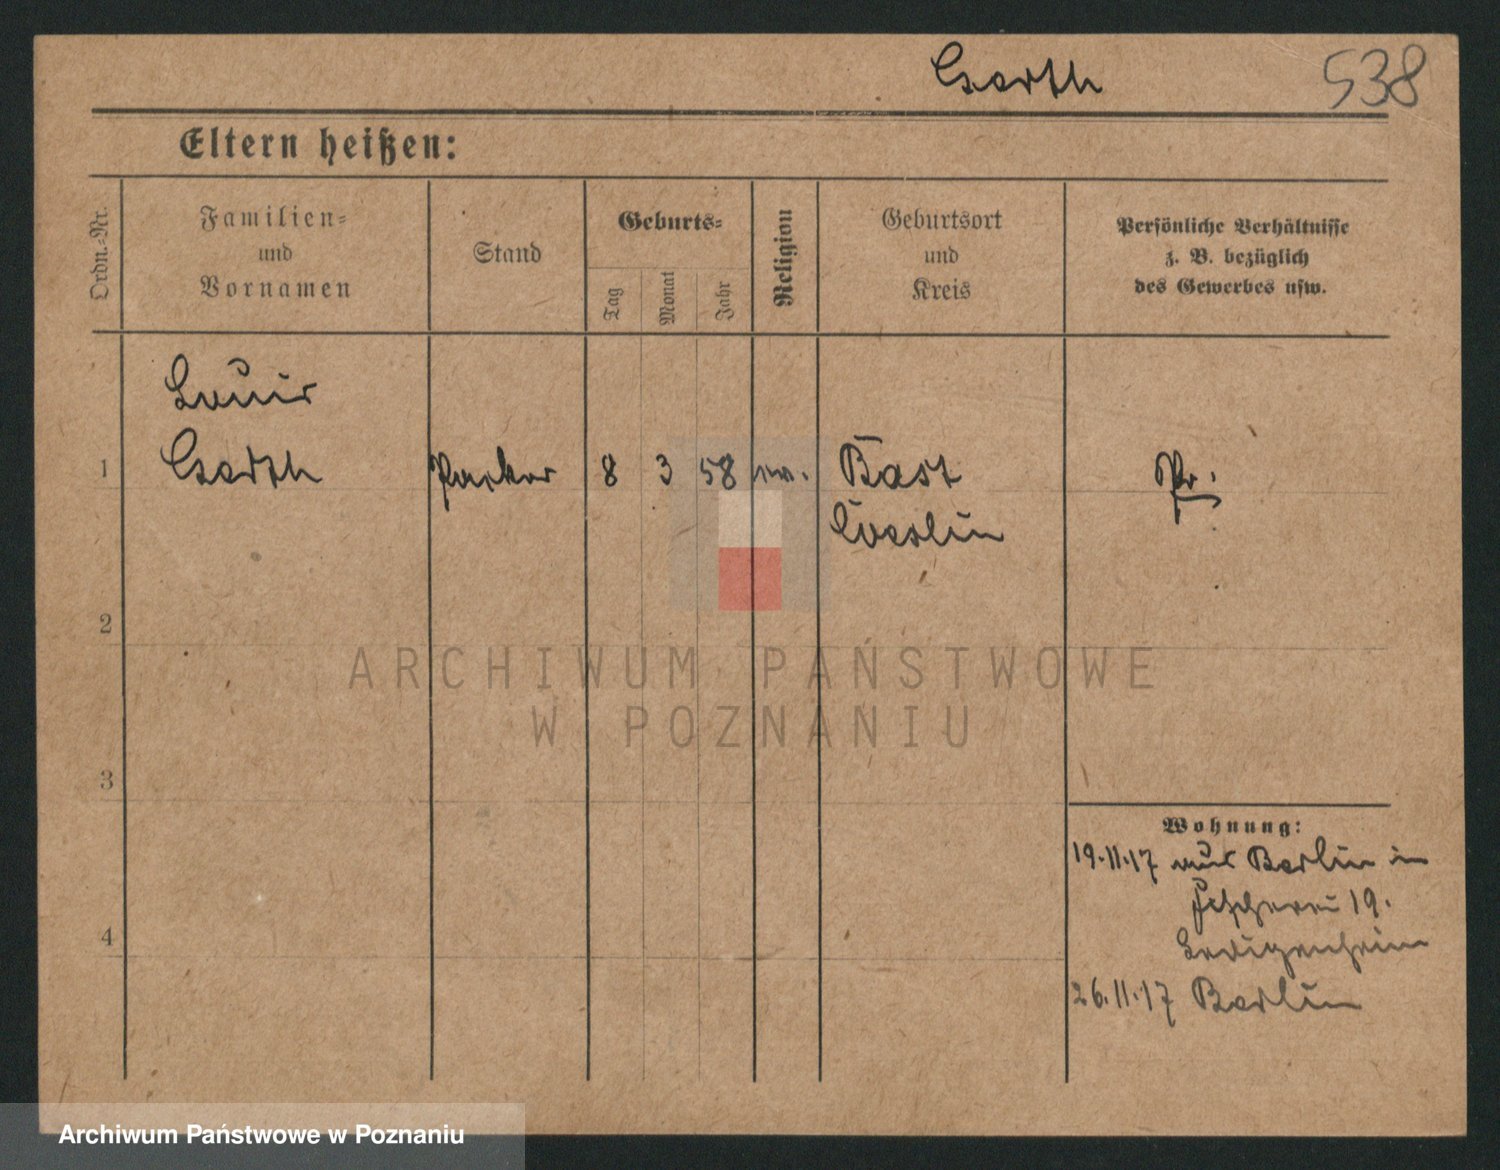 Gerth 538
Eltern heißen:
Ordn.-Nr.
Familien-
und
Vornamen
Stand
Geburts-
Tag
Monat
Jahr
Religion
Geburtsort
und
Kreis
Persönliche Verhältnisse
z. B. bezüglich
des Gewerbes usw.
Louis
1 Gerth Packer 8 3 58 ev. Bast Pr.
Cöslin
2
3
4
ARCHIWUM PAŃSTWOWE
W POZNANIU
Wohnung:
19.11.17 aus Berlin in
Fischerei 19.
Ledigenheim
26.11.17 Berlin
Archiwum Państwowe w Poznaniu